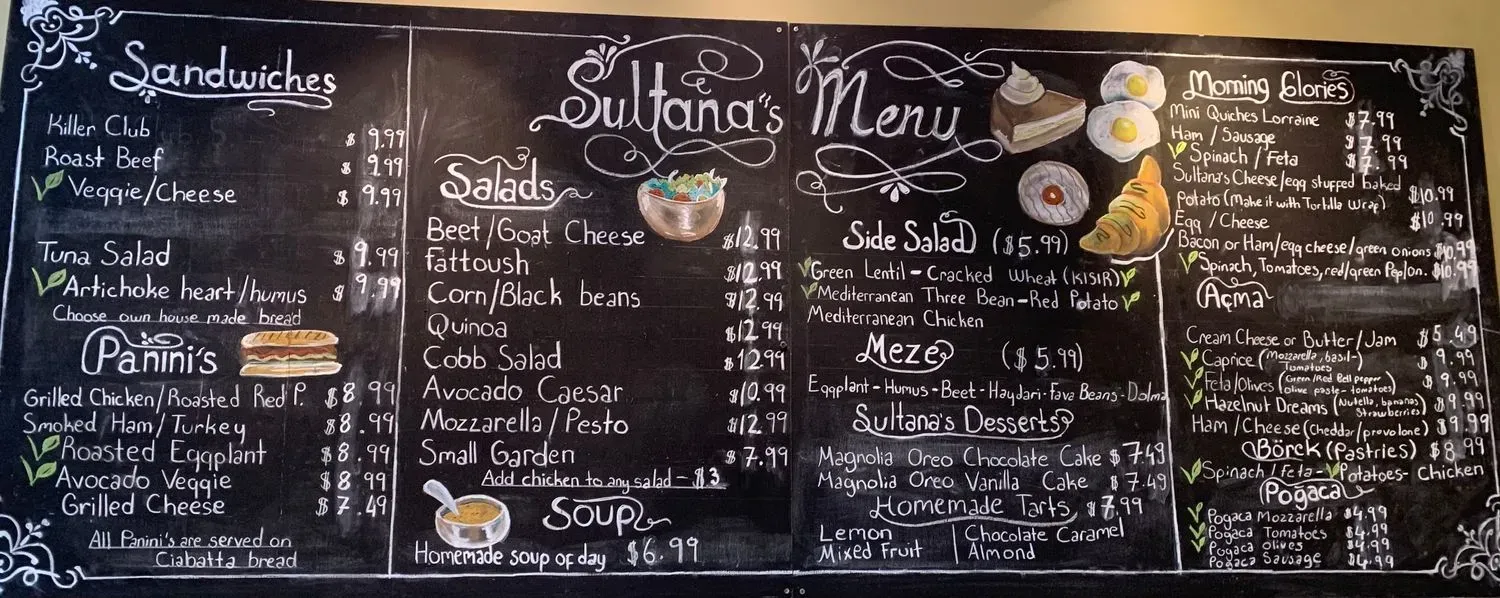 Sandwiches
Killer Club $ 9.99
Roast Beef $ 9.99
Veggie/Cheese $ 9.99
Tuna Salad $ 9.99
Artichoke heart/humus $ 9.99
Choose own house made bread
Panini's
Grilled Chicken/Roasted Red P. $8.99
Smoked Ham/Turkey $8.99
Roasted Eggplant $8.99
Avocado Veggie $8 99
Grilled Cheese $7.49
All Panini's are served on
Ciabatta bread
Sultana's Menu
Salads
Beet/Goat Cheese $12.99
Fattoush $12.99
Corn/Black beans $12.99
Quinoa $12.99
Cobb Salad $12.99
Avocado Caesar $10.99
Mozzarella/Pesto $12.99
Small Garden $7.99
Add chicken to any salad - $3
Soup
Homemade soup of day $6.99
Side Salad ($5.99)
Green Lentil - Cracked Wheat (KISIR)
Mediterranean Three Bean - Red Potato
Mediterranean Chicken
Meze ($5.99)
Eggplant - Humus - Beet - Haydari - Fava Beans - Dolma
Sultana's Desserts
Magnolia Oreo Chocolate Cake $7.49
Magnolia Oreo Vanilla Cake $7.49
Homemade Tarts $7.99
Lemon | Chocolate Caramel
Mixed Fruit | Almond
Morning Glories
Mini Quiches Lorraine $7.99
Ham / Sausage $7.99
Spinach / Feta $7.99
Sultana's Cheese/egg stuffed baked
potato (Make it with Tortilla Wrap) $10.99
Egg / Cheese $10.99
Bacon or Ham/egg cheese/green onions $10.99
Spinach, Tomatoes, red/green Pep/on. $10.99
Açma
Cream Cheese or Butter/Jam $5.49
Caprice (Mozzarella, basil- Tomatoes) $9.99
Feta/Olives (Green/Red Bell pepper olive paste-tomatoes) $9.99
Hazelnut Dreams (Nutella, bananas Strawberries) $9.99
Ham/Cheese (Cheddar/provolone) $9.99
Börek (Pastries) $8 99
Spinach/Feta - Potatoes - Chicken
Pogaca
Pogaca Mozzarella $4.99
Pogaca Tomatoes $4.99
Pogaca Olives $4.99
Pogaca Sausage $4.99